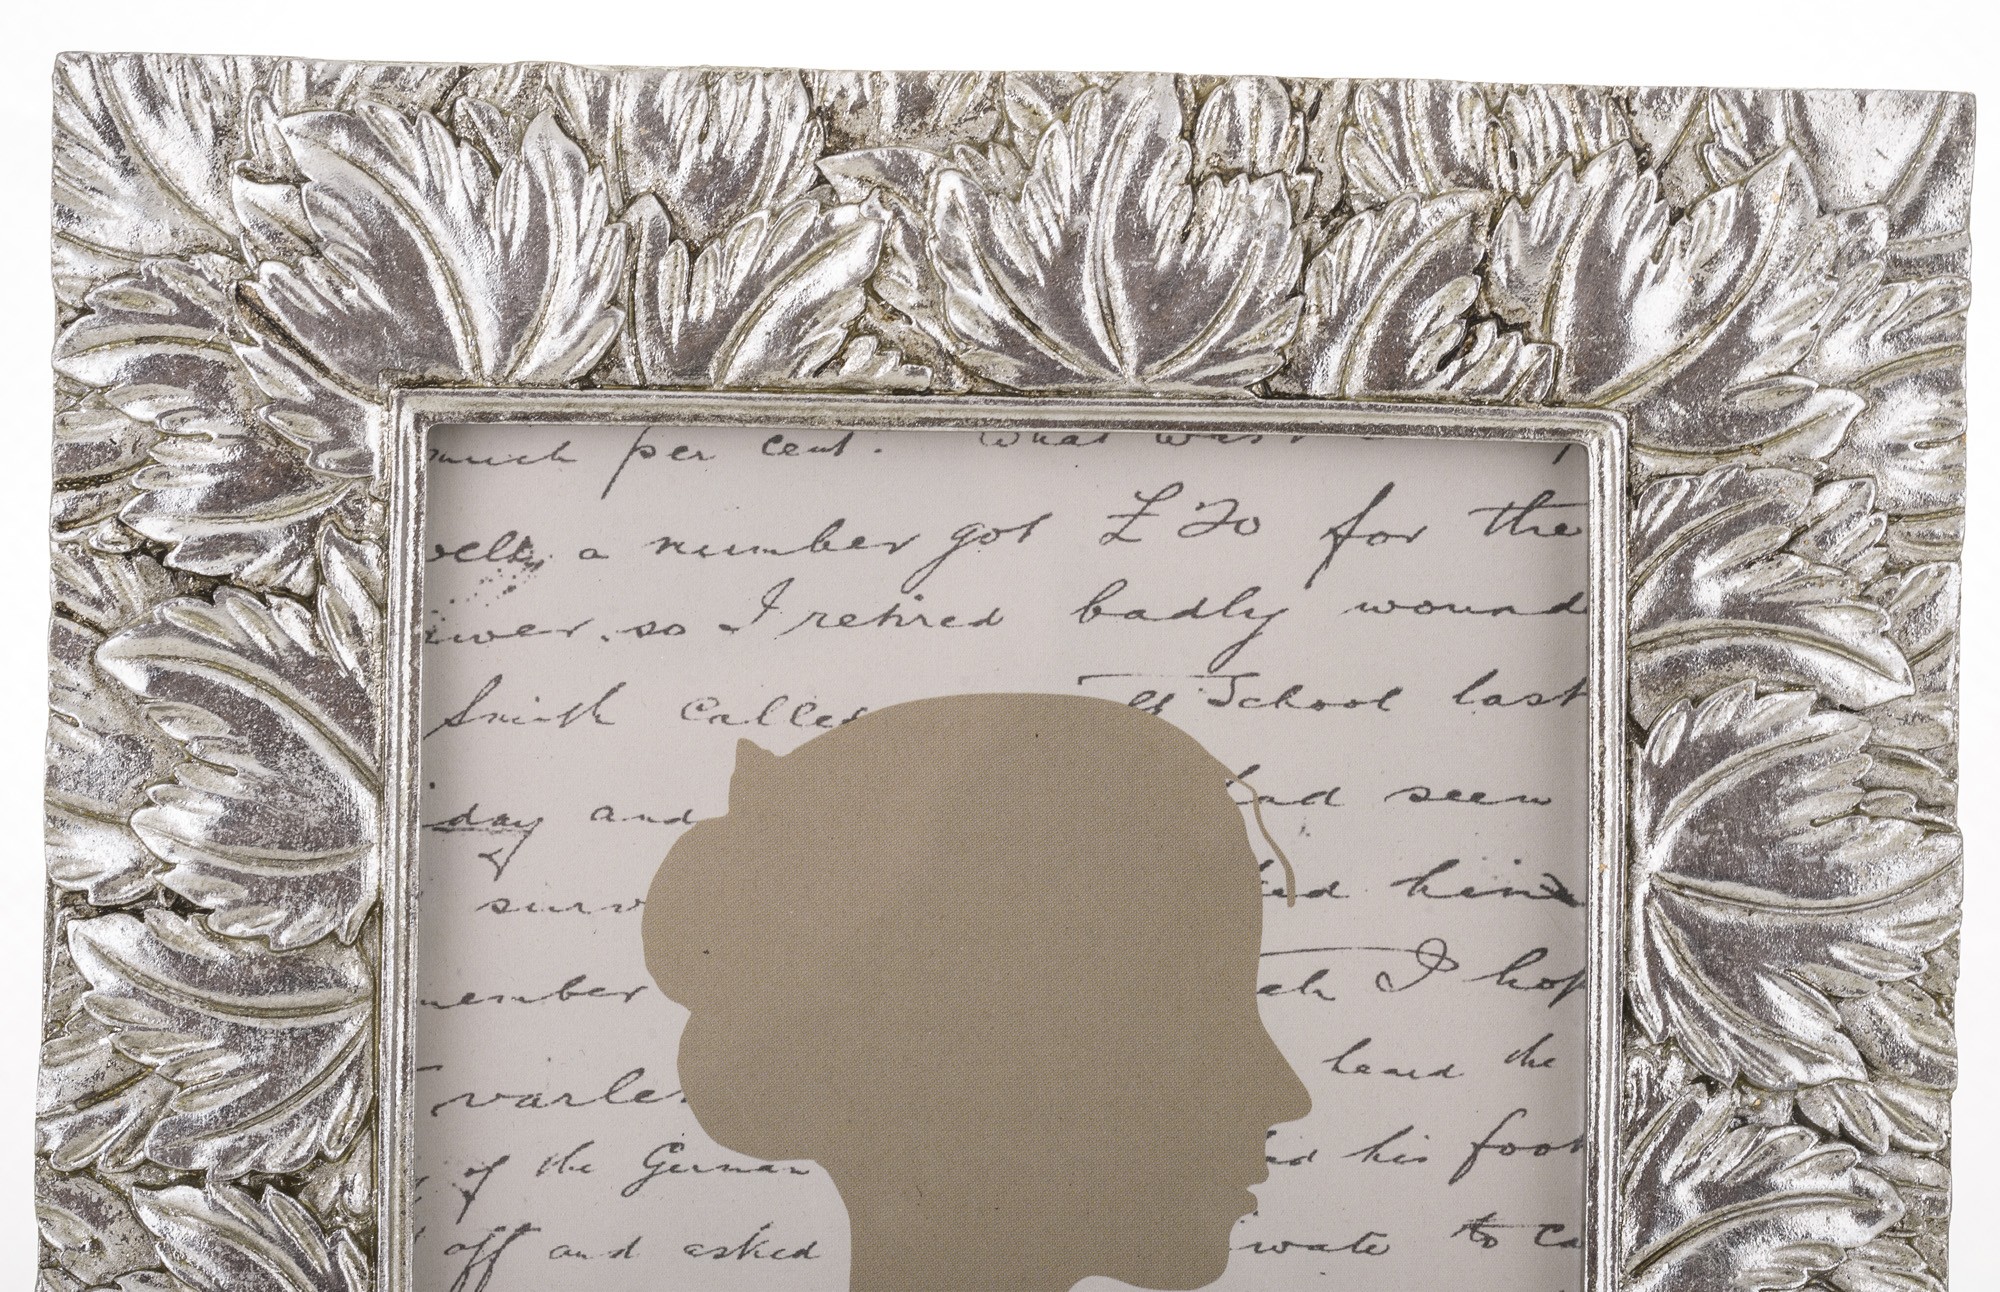 much per cent. What was
a number got £20 for the
so I retired badly wound
Smith called School last
day and had seen
surv him
member I hop
heard the
of the German his foot
off and asked to ca